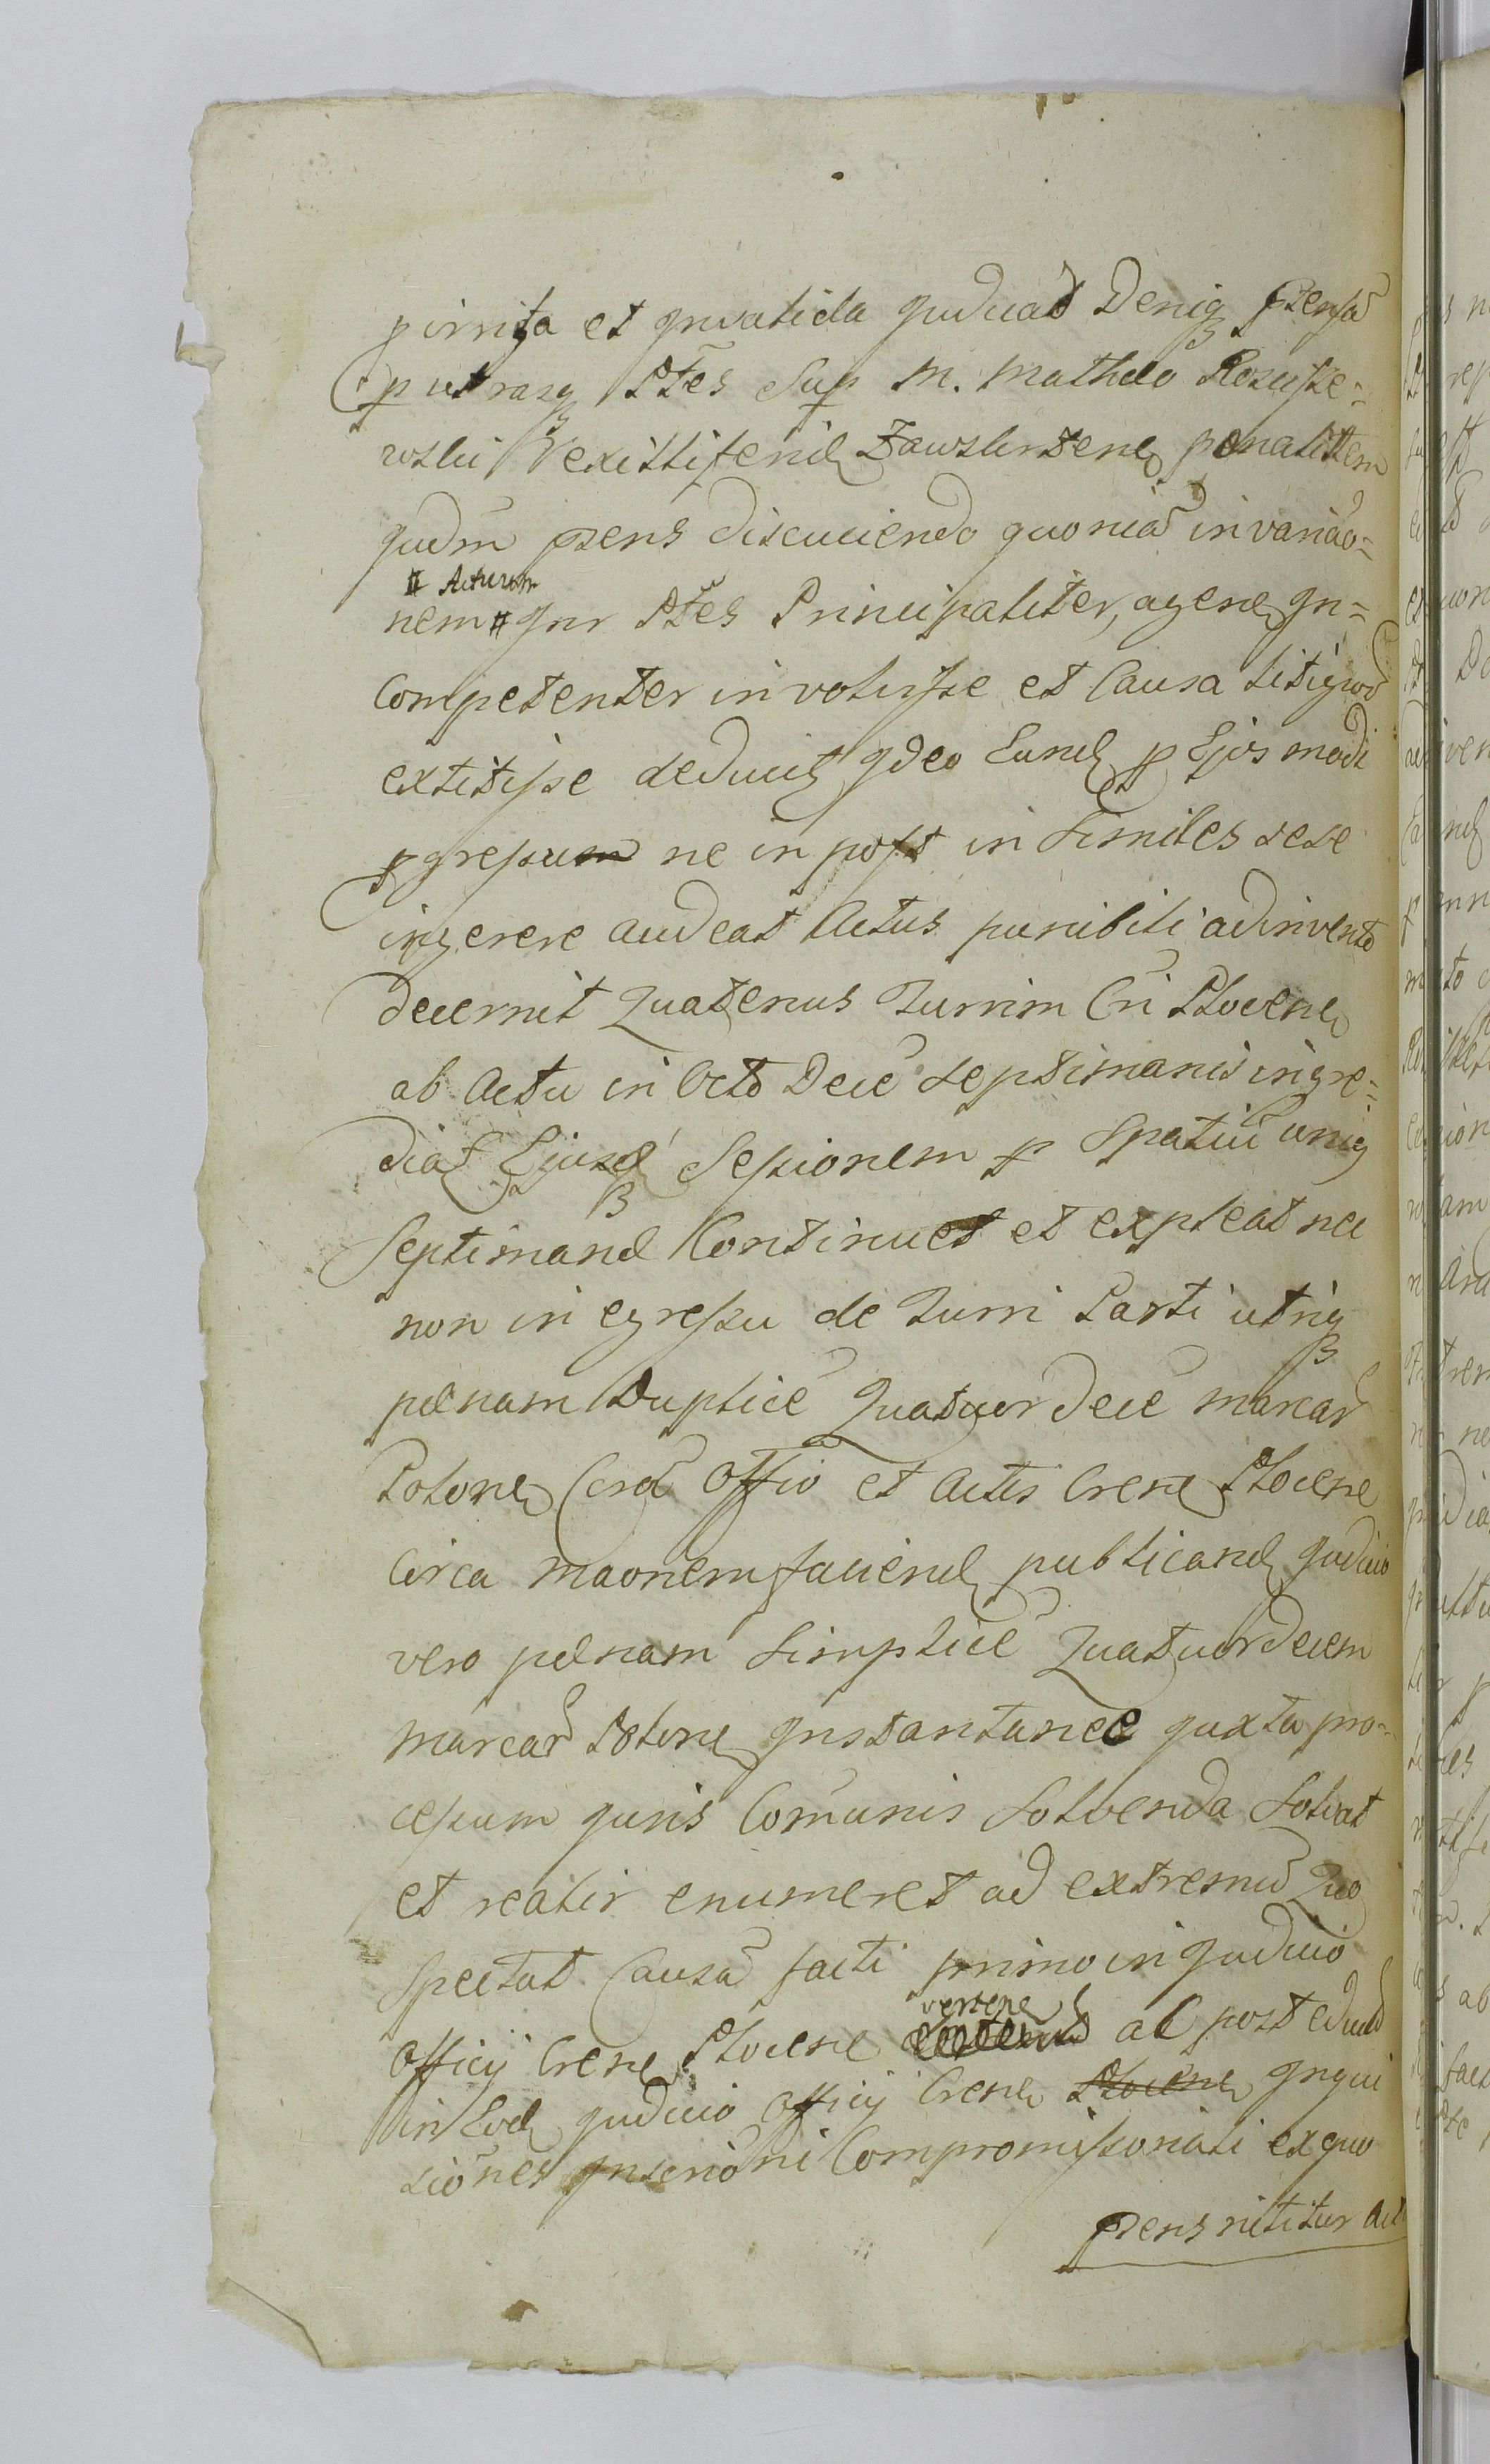 p irrita et invalida judicat Deniq pztensa
p utrasq Ptes Sup M. Matheo Roscisze=
wski Vexillifend Zawskrzene ponalittem
Judm pzens discuciendo quonia in variao=
# Actum
nem # inr Ptes Principaliter, agene in=
Competenter involvisse et Causa litigiod
extitisse deducit ideo Eand p Ejosmodi
pgressum ne in post in Similes sese
ingerere audeat Actus punibili adinvento
decernit Quatenus Turrim Cri Plocene
ab Actu in Octo Dece Septimanis ingre=
diat Ejusd Sessionem p Spatiu uniq
Septimanæ Continuet et expleat nec
non in egressu de Turri Parti utriq
pœnam Duplice Quatuordece marcar
Polone Cora Offio et Actis Crene Plocene
Circa maonem faciend publicand Judicio
vero pœnam Simplice Quatuordecem
marcar Polone Instantaneæ juxta pro=
cessum juris Comunis Solvenda Solvat
et realir enumeret ad extremu Quo
Spectat Causa facti primo in Judicio
Officij Crene Plocene vertene ac post
in Eod Judicio Officij Crene Plocene Inqui
siones Inserioni Compromissoriali ex quo
pzens nititur Act